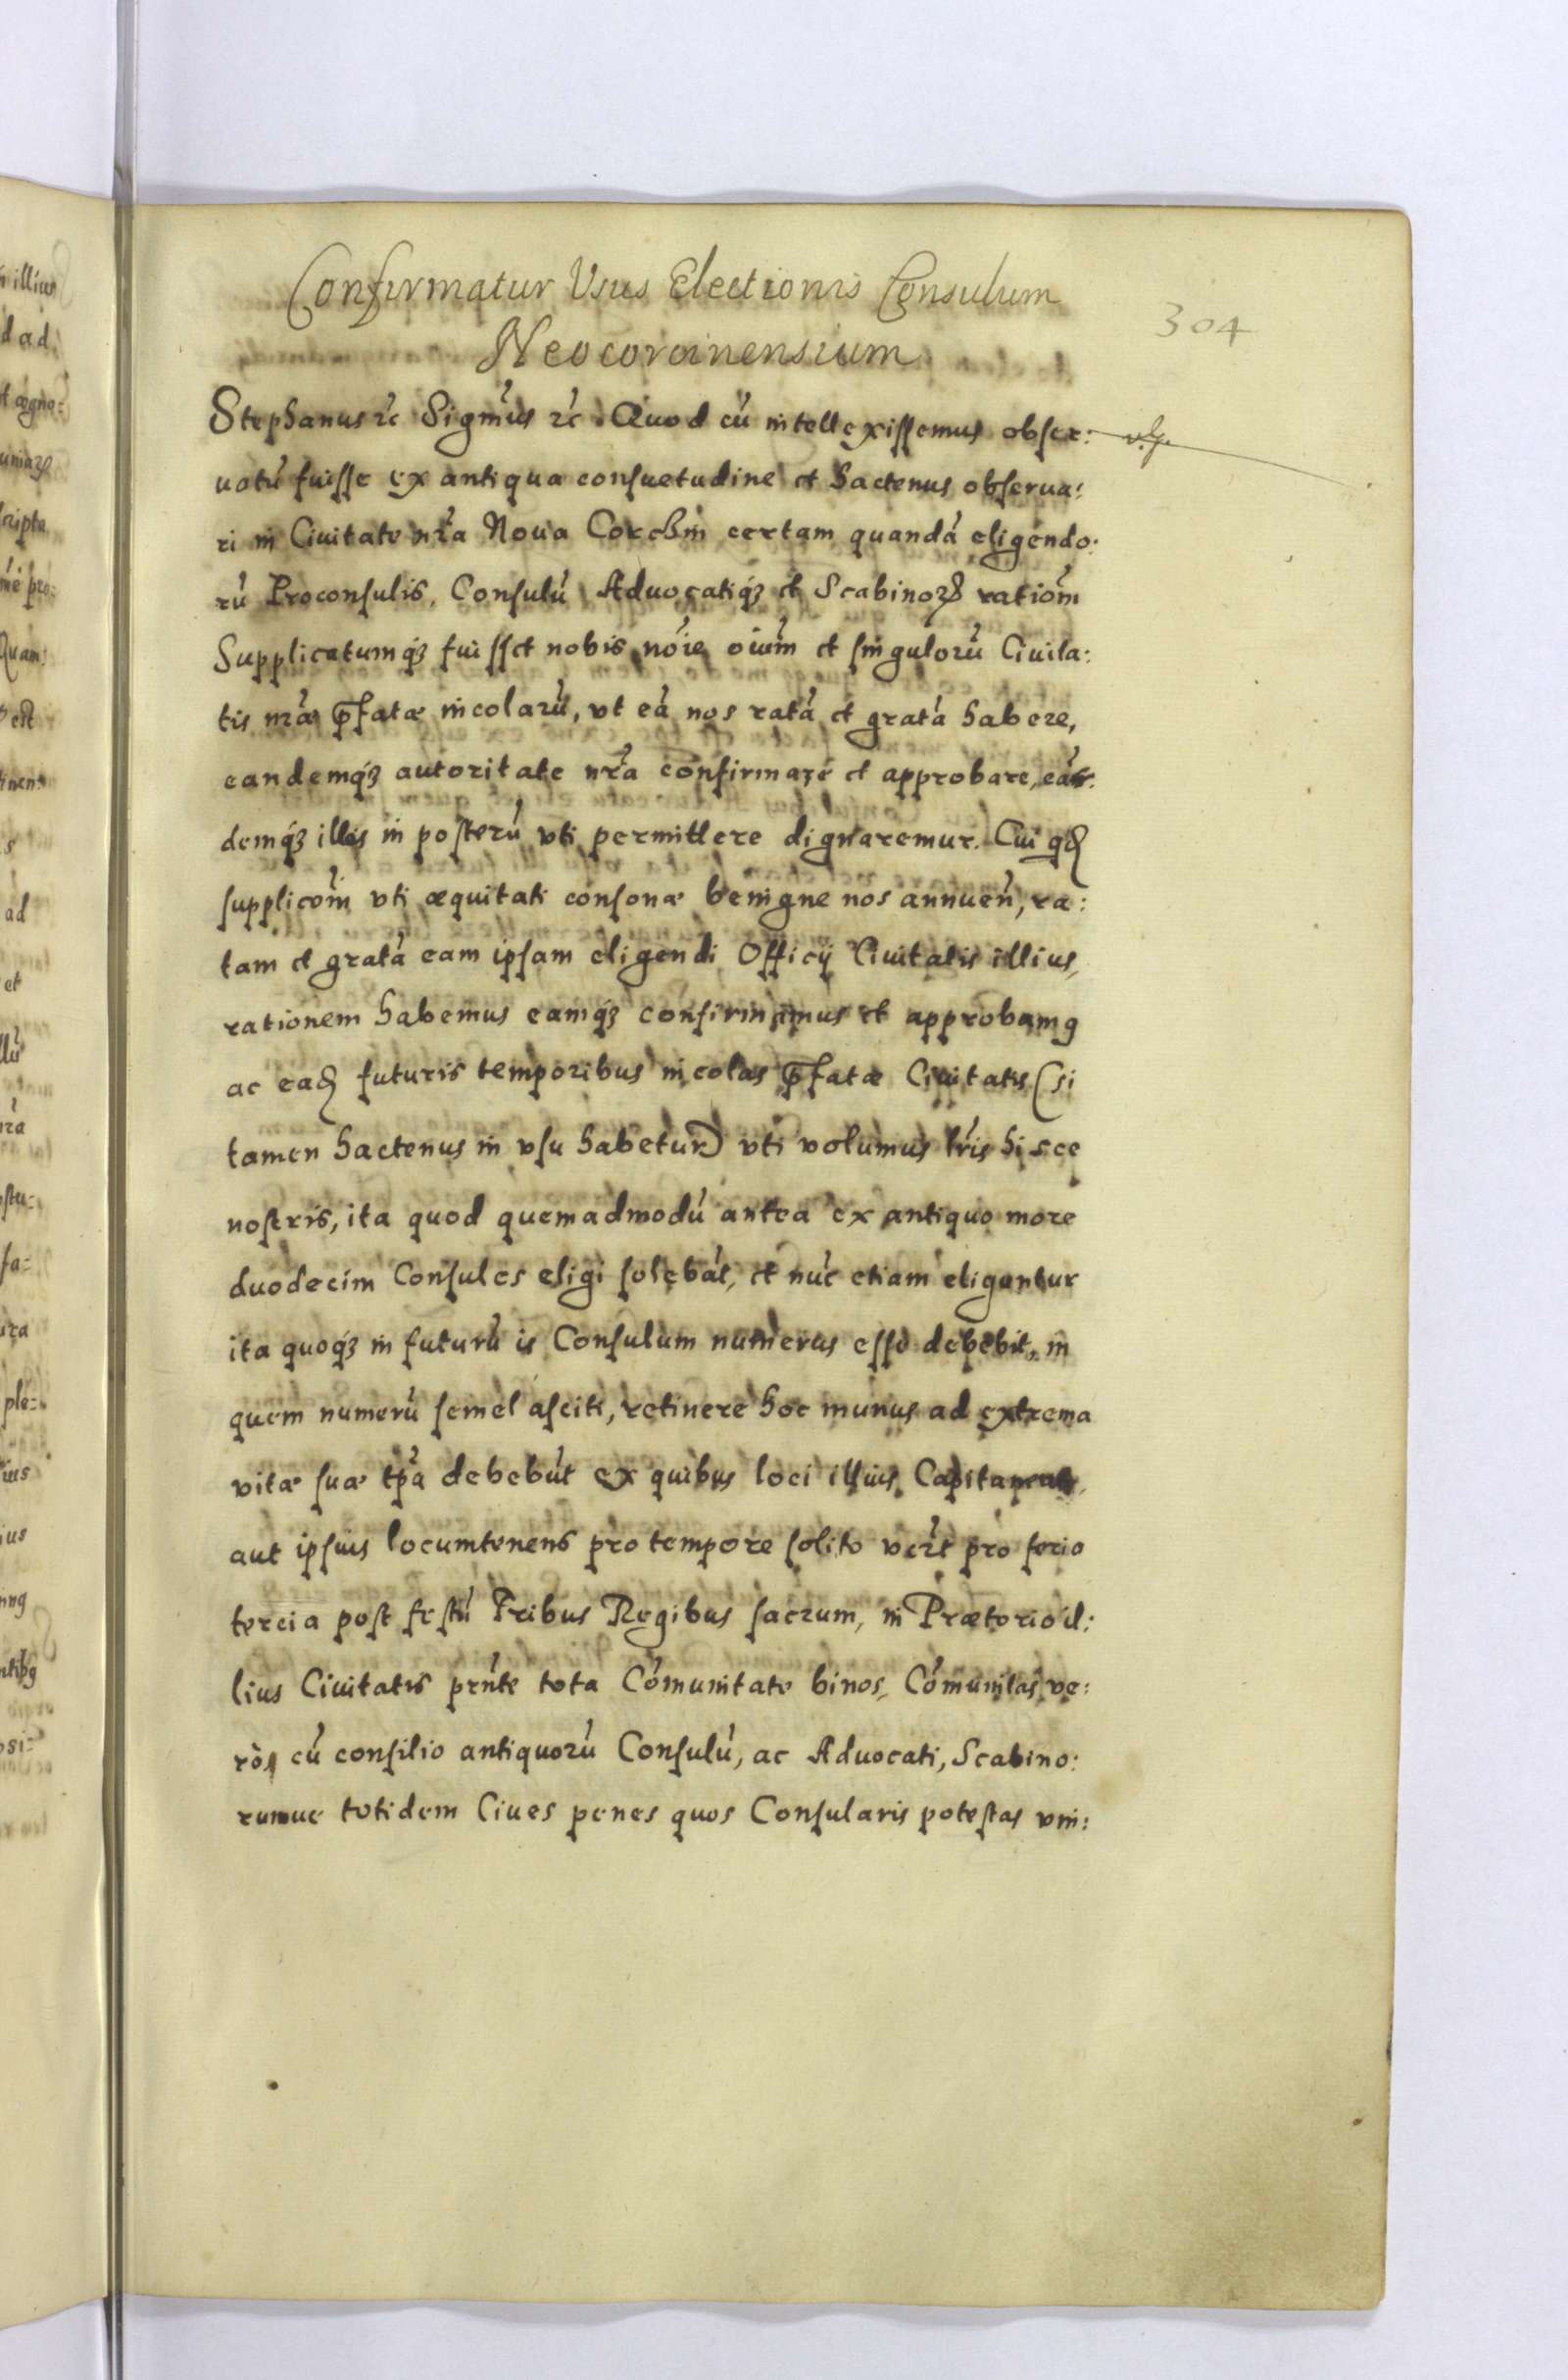 Confirmatur Usus Electionis Consulum
Neocorcinensium
304
Stephanus ꝛc Sigm̃us ꝛc. Quod cũ intellexissemus obser:
uatũ fuisse ex antiqua consuetudine et hactenus obserua:
ri in Ciuitate nr̃a Noua Corchin certam quandã eligendo:
rũ Proconsulis, Consulũ Aduocatiq́ꝫ et Scabinoꝝ ratiom̃
Supplicatumq́ꝫ fuisset nobis noĩe oium̃ et singulorũ Ciuita:
tis nr̃æ p̃fatæ incolarũ, vt eã nos ratã et gratã habere,
eandemq́ꝫ autoritate nr̃a confirmare et approbare, eã:
demq́ꝫ illis in posterũ vti permittere dignaremur. Cui qd̃
supplicom̃ vti æquitati consonæ benigne nos annuen̄, ra:
tam et gratã eam ipsam eligendi Officij Ciuitatis illius,
rationem habemus eamq́ꝫ confirmamus et approbamꝯ
ac ead̃ futuris temporibus incolas p̃fatæ Ciuitatis (si
tamen hactenus in vsu habetur) vti volumus lr̃is hisce
nostris, ita quod quemadmodũ antea ex antiquo more
duodecim Consules eligi solebãt, et nũc etiam eliguntur
ita quoq́ꝫ in futurũ is Consulum numerus esse debebit, in
quem numerũ semel asciti, retinere hoc munus ad extrema
vitæ suæ tp̃a debebũt ex quibus loci illius Capitaneus,
aut ipsius locumtenens pro tempore solito vcr̃t pro feria
tercia post festũ Tribus Regibus sacrum, in Prætorio il:
lius Ciuitatis prñte tota Cõmunitate binos, Cõmunitas ve:
rò, cũ consilio antiquorũ Consulũ, ac Aduocati, Scabino:
rumue totidem Ciues penes quos Consularis potestas vni: